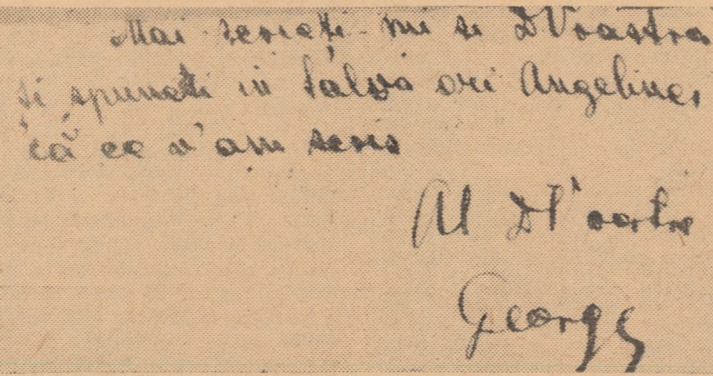 Mai scrieti-mi si DVoastra
și spuneti in Salva ori Angelinei
că ce v'am scris
Al DV'oastre
George